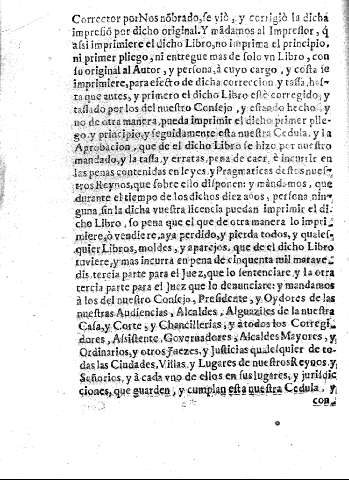 Corrector por Nos nõbrado, se viò, y corrigiò la dicha
impresiõ por dicho original. Y mãdamos al Impressor, q̃
assi imprimiere el dicho Libro, no imprima el principio,
ni primer pliego, ni entregue mas de solo vn Libro, con
su original al Autor, y persona, à cuyo cargo, y costa se
imprimiere, para efecto de dicha correccion, y tassa, has-
ta que antes, y primero el dicho Libro estè corregido, y
tassado por los del nuestro Consejo, y estando hecho, y
no de otra manera, pueda imprimir el dicho primer plie-
go, y principio, y seguidamente esta nuestra Cedula, y la
Aprobacion, que de el dicho Libro se hizo por nuestro
mandado, y la tassa, y erratas, pena de caer, è incurrir en
las penas contenidas en leyes, y Pragmaticas destos nues-
tros Reynos, que sobre ello disponen: y mãdamos, que
durante el tiempo de los dichos diez años, persona nin-
guna, sin la dicha vuestra licencia puedan imprimir el di-
cho Libro, so pena que el que de otra manera lo impri-
miere, ò vendiere, aya perdido, y pierda todos, y quales-
quier Libros, moldes, y aparejos, que de el dicho Libro
tuviere, y mas incurra en pena de cinquenta mil marave
dis, tercia parte para el Juez, que lo sentenciare, y la otra
tercia parte para el Juez que lo denunciare: y mandamos
à los del nuestro Consejo, Presidente, y Oydores de las
nuestras Audiencias, Alcaldes, Alguaziles de la nuestra
Casa, y Corte, y Chancillerias, y à todos los Corregi-
dores, Asistente, Governadores, Alcaldes Mayores, y
Ordinarios, y otros Juezes, y Justicias qualesquier de to-
das las Ciudades, Villas, y Lugares de nuestros Reynos, y
Señorios, y à cada vno de ellos en sus lugares, y jurisdic
ciones, que guarden, y cumplan esta nuestra Cedula, y
con-